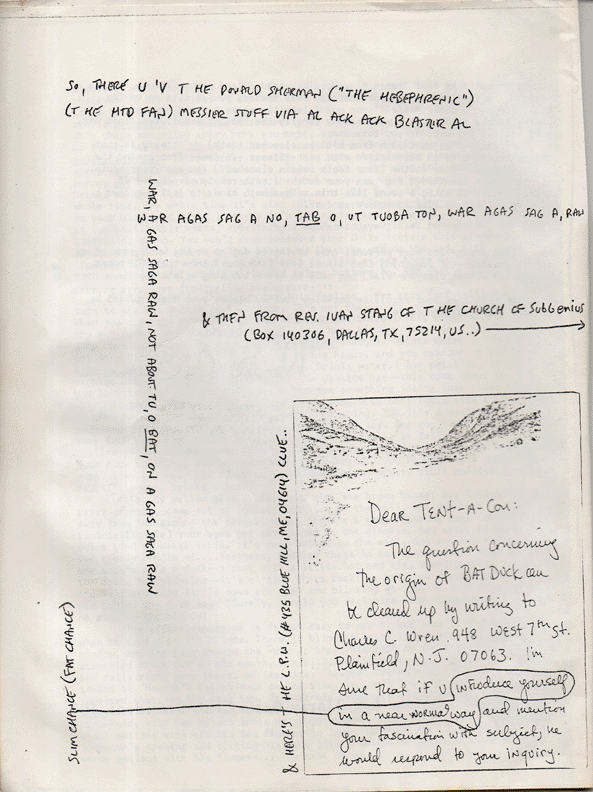 SO, THERE U 'V T HE DONALD SHERMAN ("THE HEBEPHRENIC")
(T HE MTD FAN) MESSIER STUFF VIA AL ACK ACK BLASTER AL
WAR AGAS SAG A NO, TAB O, UT TUOBA TON, WAR AGAS SAG A, RAW
WAR, A GAS SAGA RAW, NOT ABOUT TU, O BAT, ON A GAS SAGA RAW
& THEN FROM REV. IVAN STANG OF T HE CHURCH OF SubGenius
(BOX 140306, DALLAS, TX, 75214, US..)
& HERE'S T HE L.P.U. (#435 BLUE HILL, ME, 04614) CLUE..
Dear TENT-A-CON:
The question concerning
the origin of BAT DUCK can
be cleared up by writing to
Charles C. Wren 948 West 7th St.
Plainfield, N.J. 07063. I'm
sure that if u introduce yourself
in a near NORMAL way and mention
your fascination with subject, he
would respond to your inquiry.
SLIM CHANCE (FAT CHANCE)